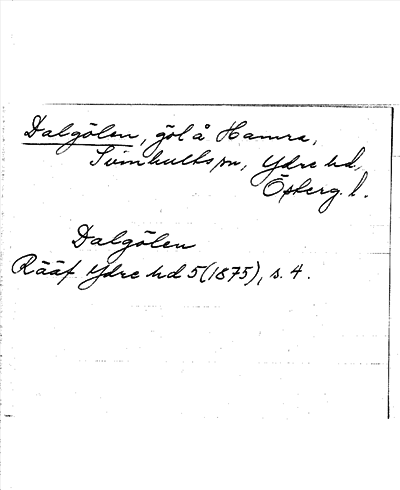 Dalgölen, göl å Hamra,
Svinhults sn, Ydre hd,
Österg. l.
Dalgölen
Rääf Ydre hd 5 (1875), s. 4.